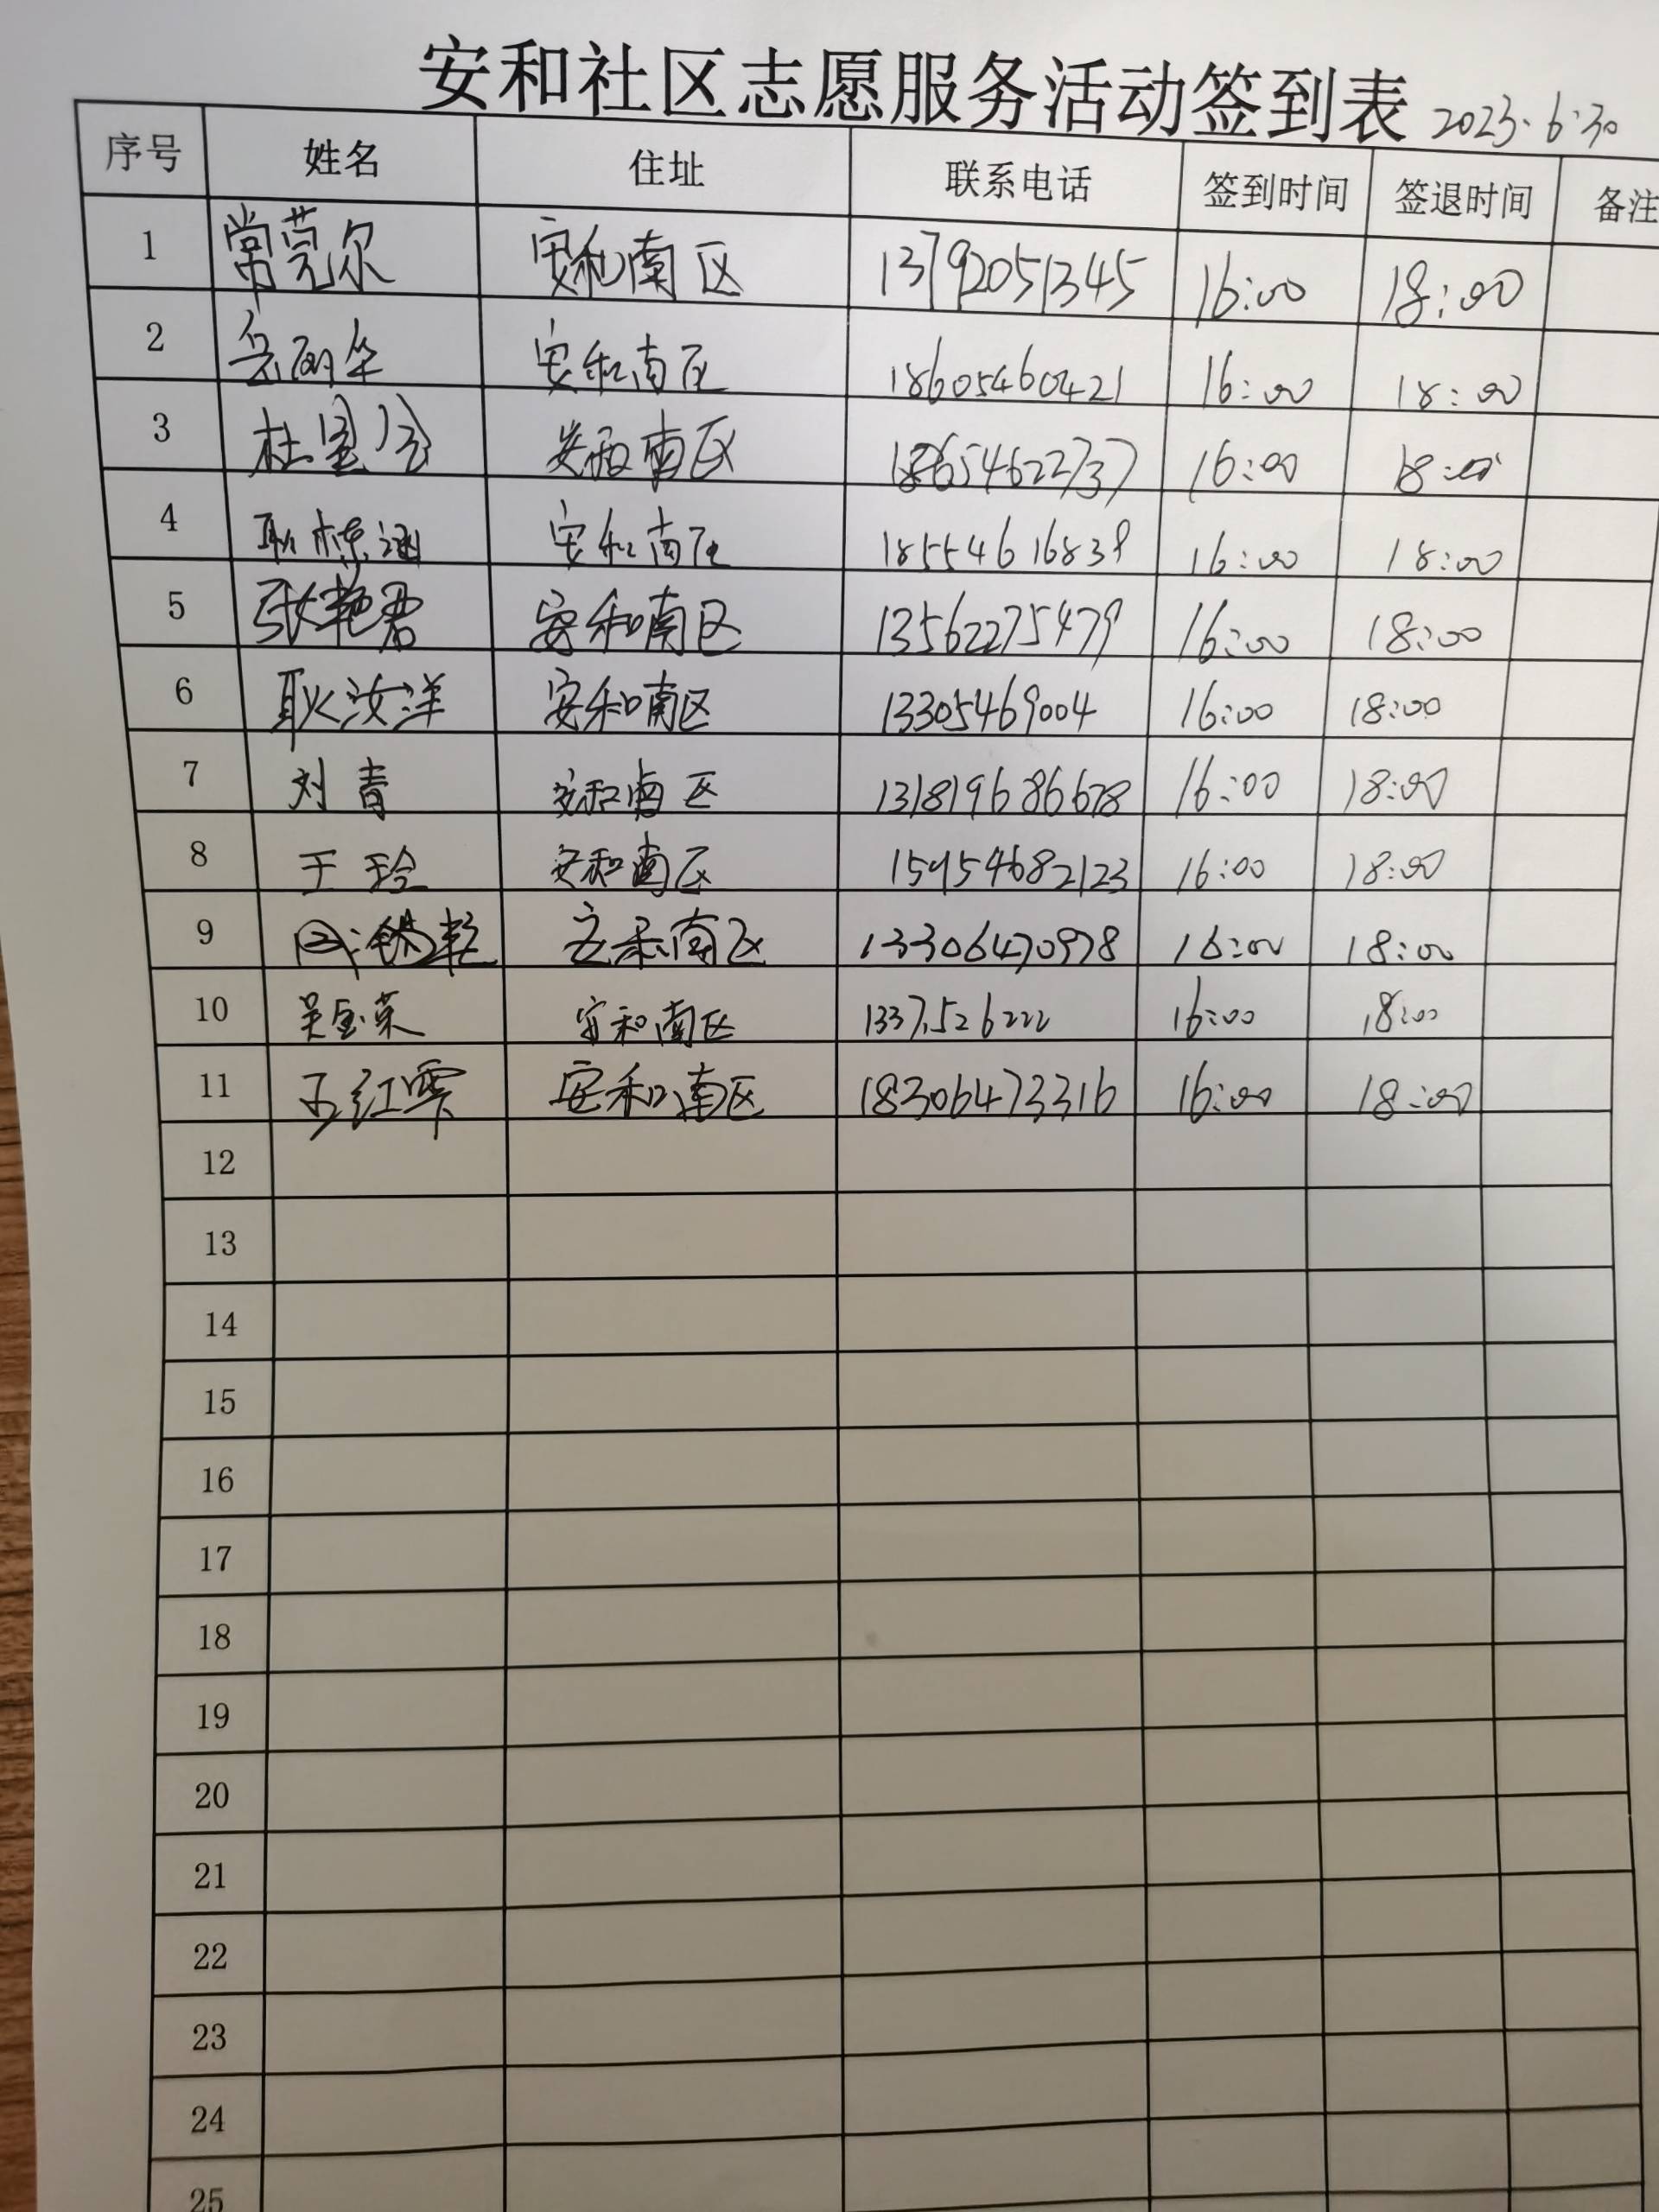 安和社区志愿服务活动签到表 2023.6.30
序号 姓名 住址 联系电话 签到时间 签退时间 备注
1 常莞尔 安和南区 13792051345 16:00 18:00
2 岳丽华 安和南区 18605460421 16:00 18:00
3 杜 安和南区 18654622737 16:00 18:00
4 耿栋涵 安和南区 18554616838 16:00 18:00
5 张艳君 安和南区 13562275479 16:00 18:00
6 耿汝洋 安和南区 13305469004 16:00 18:00
7 刘青 安和南区 131819686678 16:00 18:00
8 王玲 安和南区 15954682123 16:00 18:00
9 安和南区 13306470978 16:00 18:00
10 吴宝荣 安和南区 16:00 18:00
11 王红霞 安和南区 18306473316 16:00 18:00
12
13
14
15
16
17
18
19
20
21
22
23
24
25